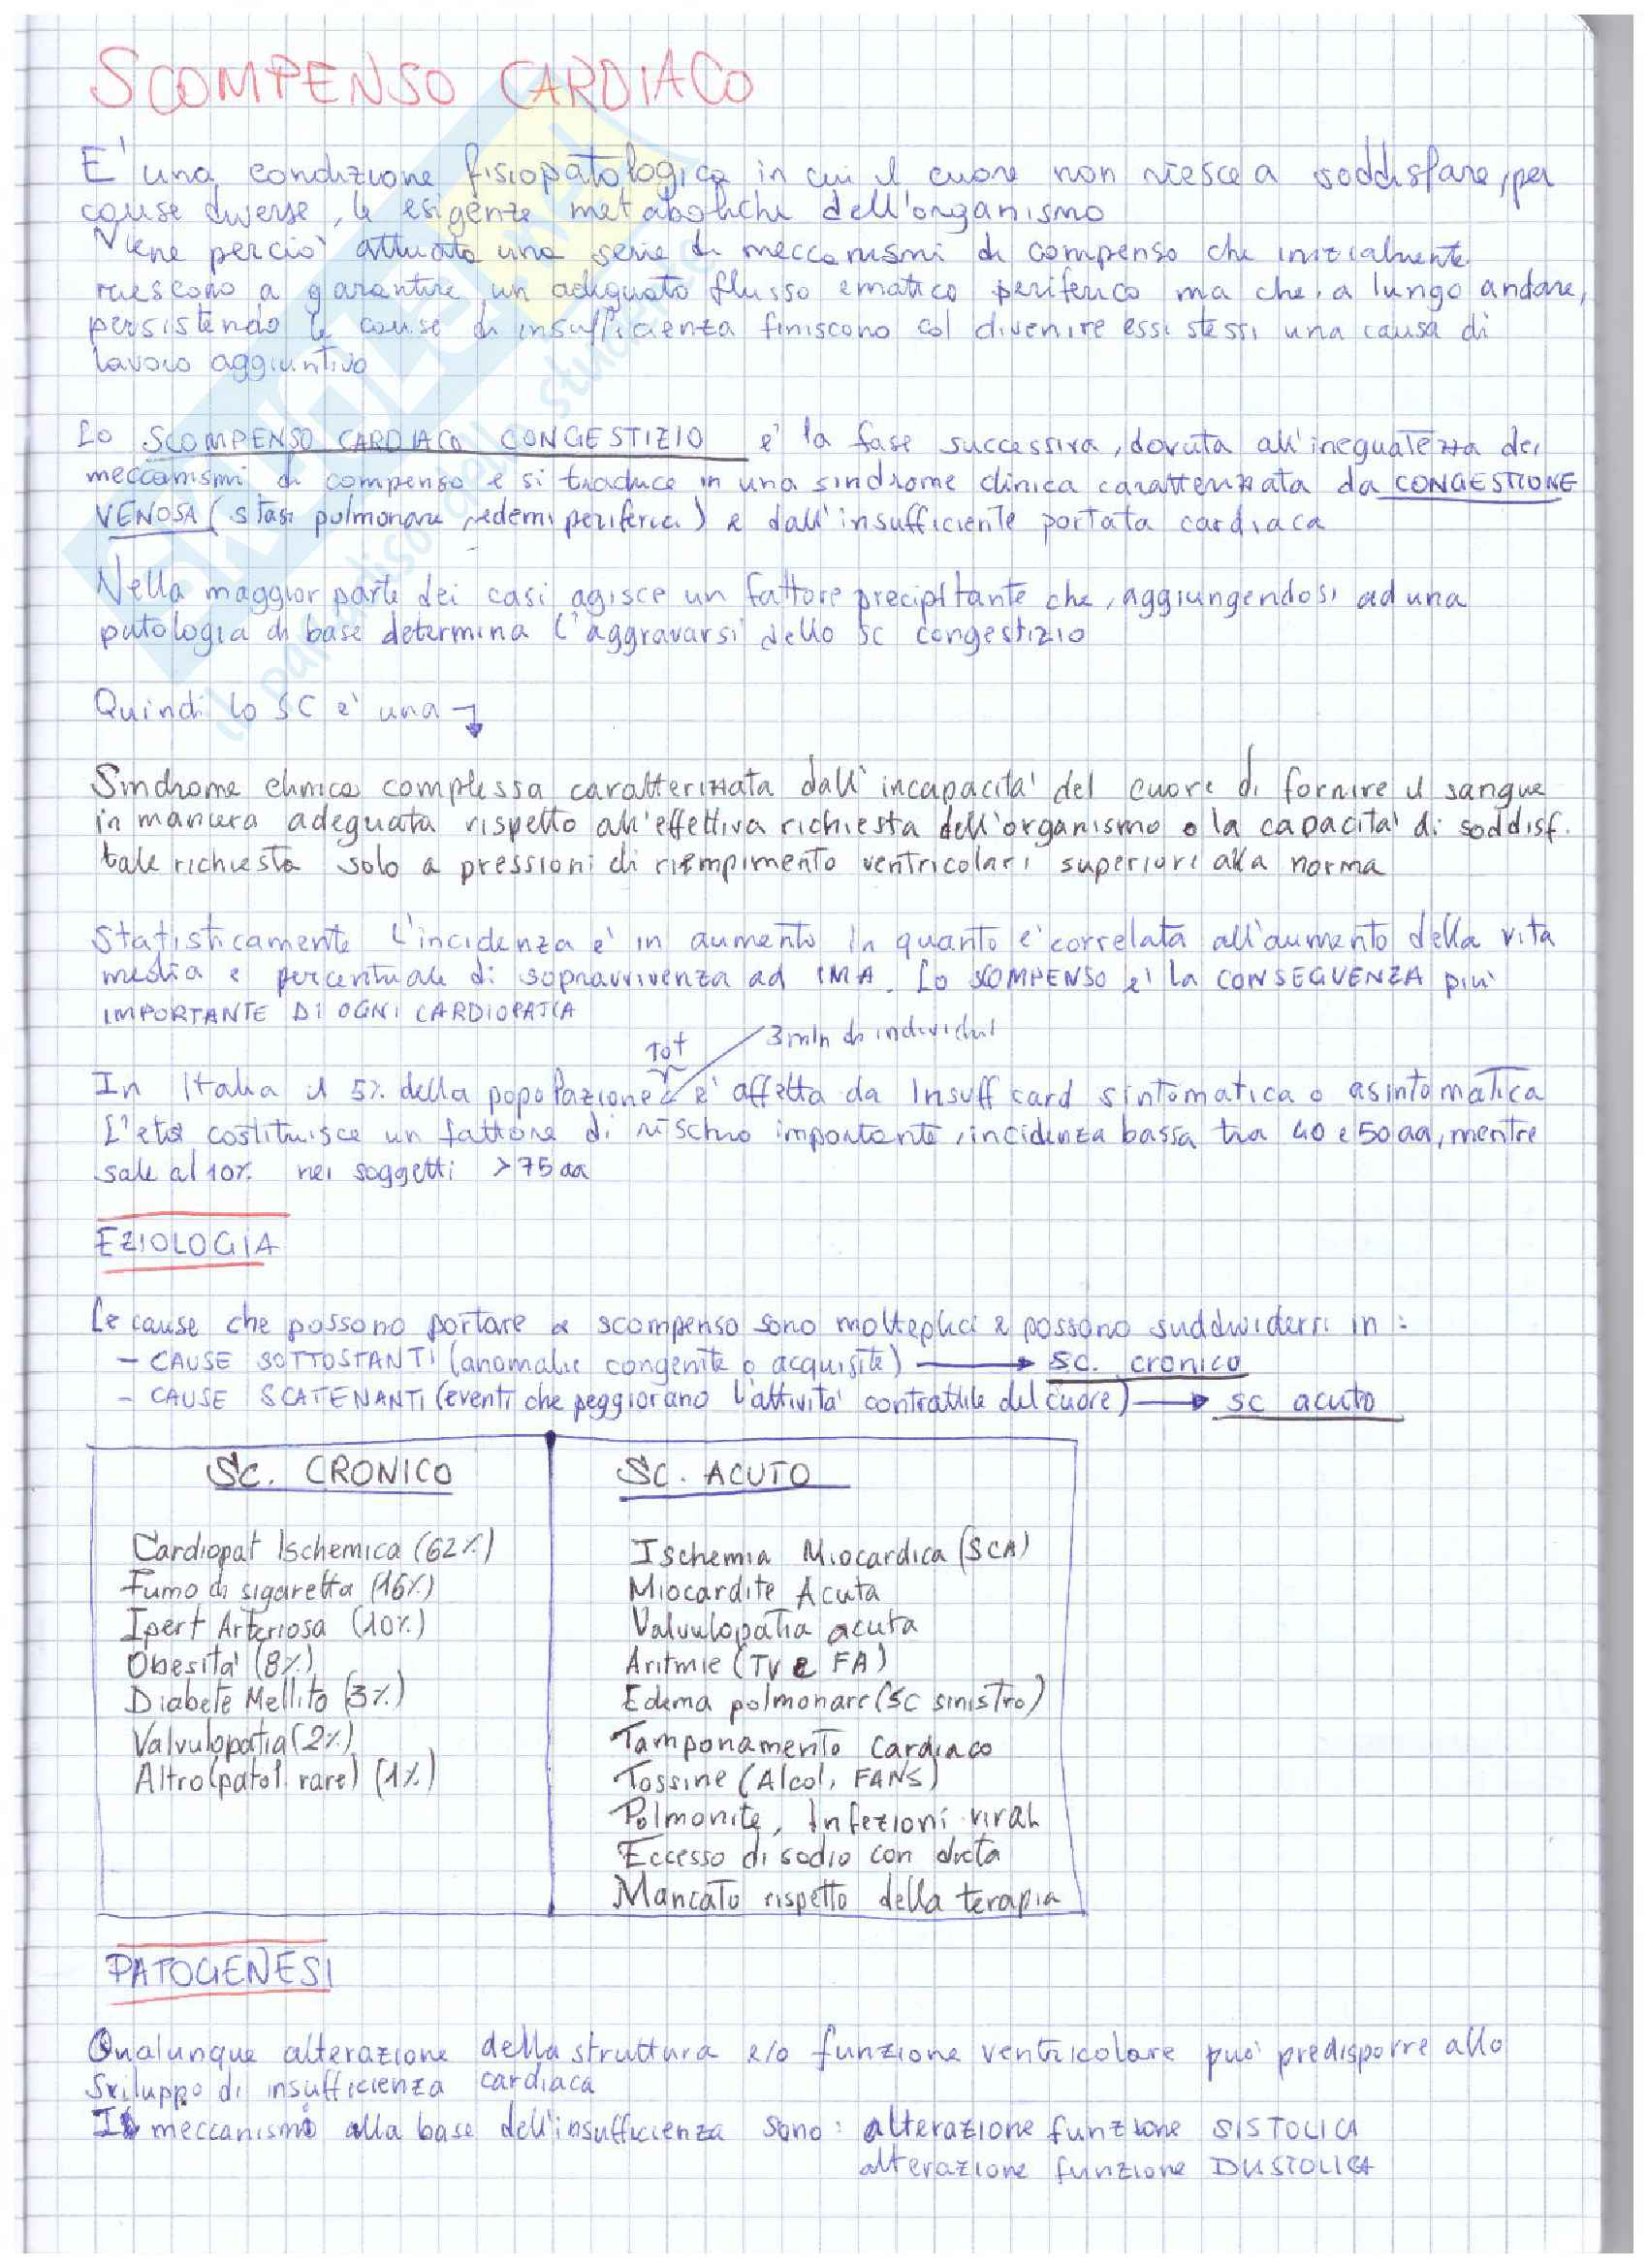 SCOMPENSO CARDIACO
E' una condizione fisiopatologica in cui il cuore non riesce a soddisfare, per
cause diverse, le esigenze metaboliche dell'organismo
Viene perciò attuata una serie di meccanismi di compenso che inizialmente
riescono a garantire un adeguato flusso ematico periferico ma che, a lungo andare,
persistendo le cause di insufficienza finiscono col divenire essi stessi una causa di
lavoro aggiuntivo
Lo SCOMPENSO CARDIACO CONGESTIZIO e' la fase successiva, dovuta all'ineguatezza dei
meccanismi di compenso e si traduce in una sindrome clinica caratterizzata da CONGESTIONE
VENOSA (stasi polmonare, edemi periferici) e dall'insufficiente portata cardiaca
Nella maggior parte dei casi agisce un fattore precipitante che, aggiungendosi ad una
patologia di base determina l'aggravarsi dello sc congestizio
Quindi lo SC e' una
Sindrome clinica complessa caratterizzata dall'incapacita' del cuore di fornire il sangue
in maniera adeguata rispetto all'effettiva richiesta dell'organismo o la capacita' di soddisf.
tale richiesta solo a pressioni di riempimento ventricolari superiori alla norma
Statisticamente l'incidenza e' in aumento in quanto e' correlata all'aumento della vita
media e percentuale di sopravvivenza ad IMA. Lo SCOMPENSO e' la CONSEGUENZA piu'
IMPORTANTE DI OGNI CARDIOPATIA
Tot 3 mln di individui
In Italia il 5% della popolazione e' affetta da Insuff card sintomatica o asintomatica
L'eta' costituisce un fattore di rischio importante, incidenza bassa tra 40 e 50 aa, mentre
sale al 10% nei soggetti >75 aa
EZIOLOGIA
Le cause che possono portare a scompenso sono molteplici e possono suddividersi in:
- CAUSE SOTTOSTANTI (anomalie congenite o acquisite) → sc. cronico
- CAUSE SCATENANTI (eventi che peggiorano l'attivita' contrattile del cuore) → sc acuto
SC. CRONICO
Cardiopat Ischemica (62%)
Fumo di sigaretta (16%)
Ipert Arteriosa (10%)
Obesita' (8%)
Diabete Mellito (3%)
Valvulopatia (2%)
Altro (patol. rare) (1%)
SC. ACUTO
Ischemia Miocardica (SCA)
Miocardite Acuta
Valvulopatia acuta
Aritmie (TV e FA)
Edema polmonare (SC sinistro)
Tamponamento Cardiaco
Tossine (Alcol, FANS)
Polmonite, Infezioni virali
Eccesso di sodio con dieta
Mancato rispetto della terapia
PATOGENESI
Qualunque alterazione della struttura e/o funzione ventricolare puo' predisporre allo
sviluppo di insufficienza cardiaca
I meccanismi alla base dell'insufficienza sono: alterazione funzione SISTOLICA
alterazione funzione DIASTOLICA